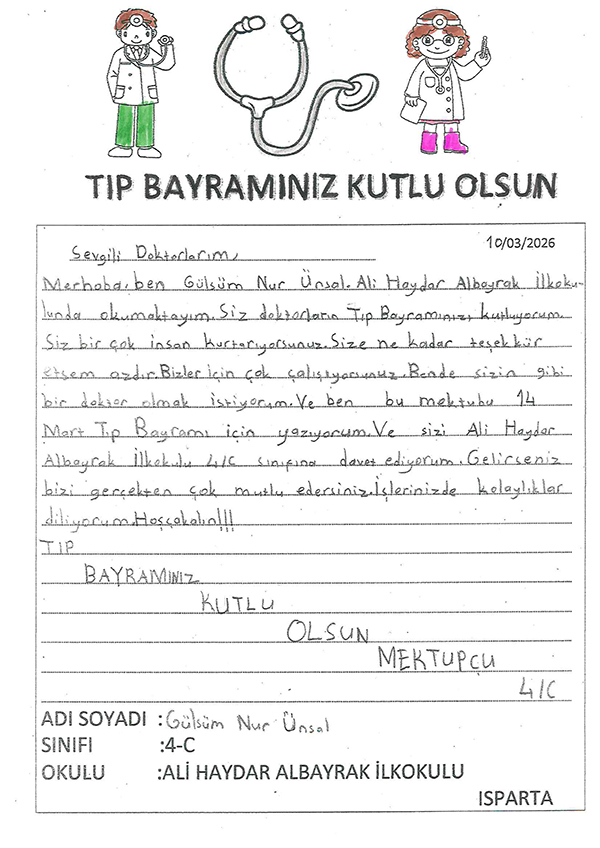 TIP BAYRAMINIZ KUTLU OLSUN
10/03/2026
Sevgili Doktorlarım,
Merhaba, ben Gülsüm Nur Ünsal. Ali Haydar Albayrak İlkoku-
lunda okumaktayım. Siz doktorların Tıp Bayramınızı kutluyorum.
Siz bir çok insan kurtarıyorsunuz. Size ne kadar teşekkür
etsem azdır. Bizler için çok çalışıyorsunuz. Bende sizin gibi
bir doktor olmak istiyorum. Ve ben bu mektubu 14
Mart Tıp Bayramı için yazıyorum. Ve sizi Ali Haydar
Albayrak İlkokulu 4/C sınıfına davet ediyorum. Gelirseniz
bizi gerçekten çok mutlu edersiniz. İşlerinizde kolaylıklar
diliyorum. Hoşçakalın!!!
TIP
BAYRAMINIZ
KUTLU
OLSUN
MEKTUPÇU
4/C
ADI SOYADI : Gülsüm Nur Ünsal
SINIFI :4-C
OKULU :ALİ HAYDAR ALBAYRAK İLKOKULU
ISPARTA